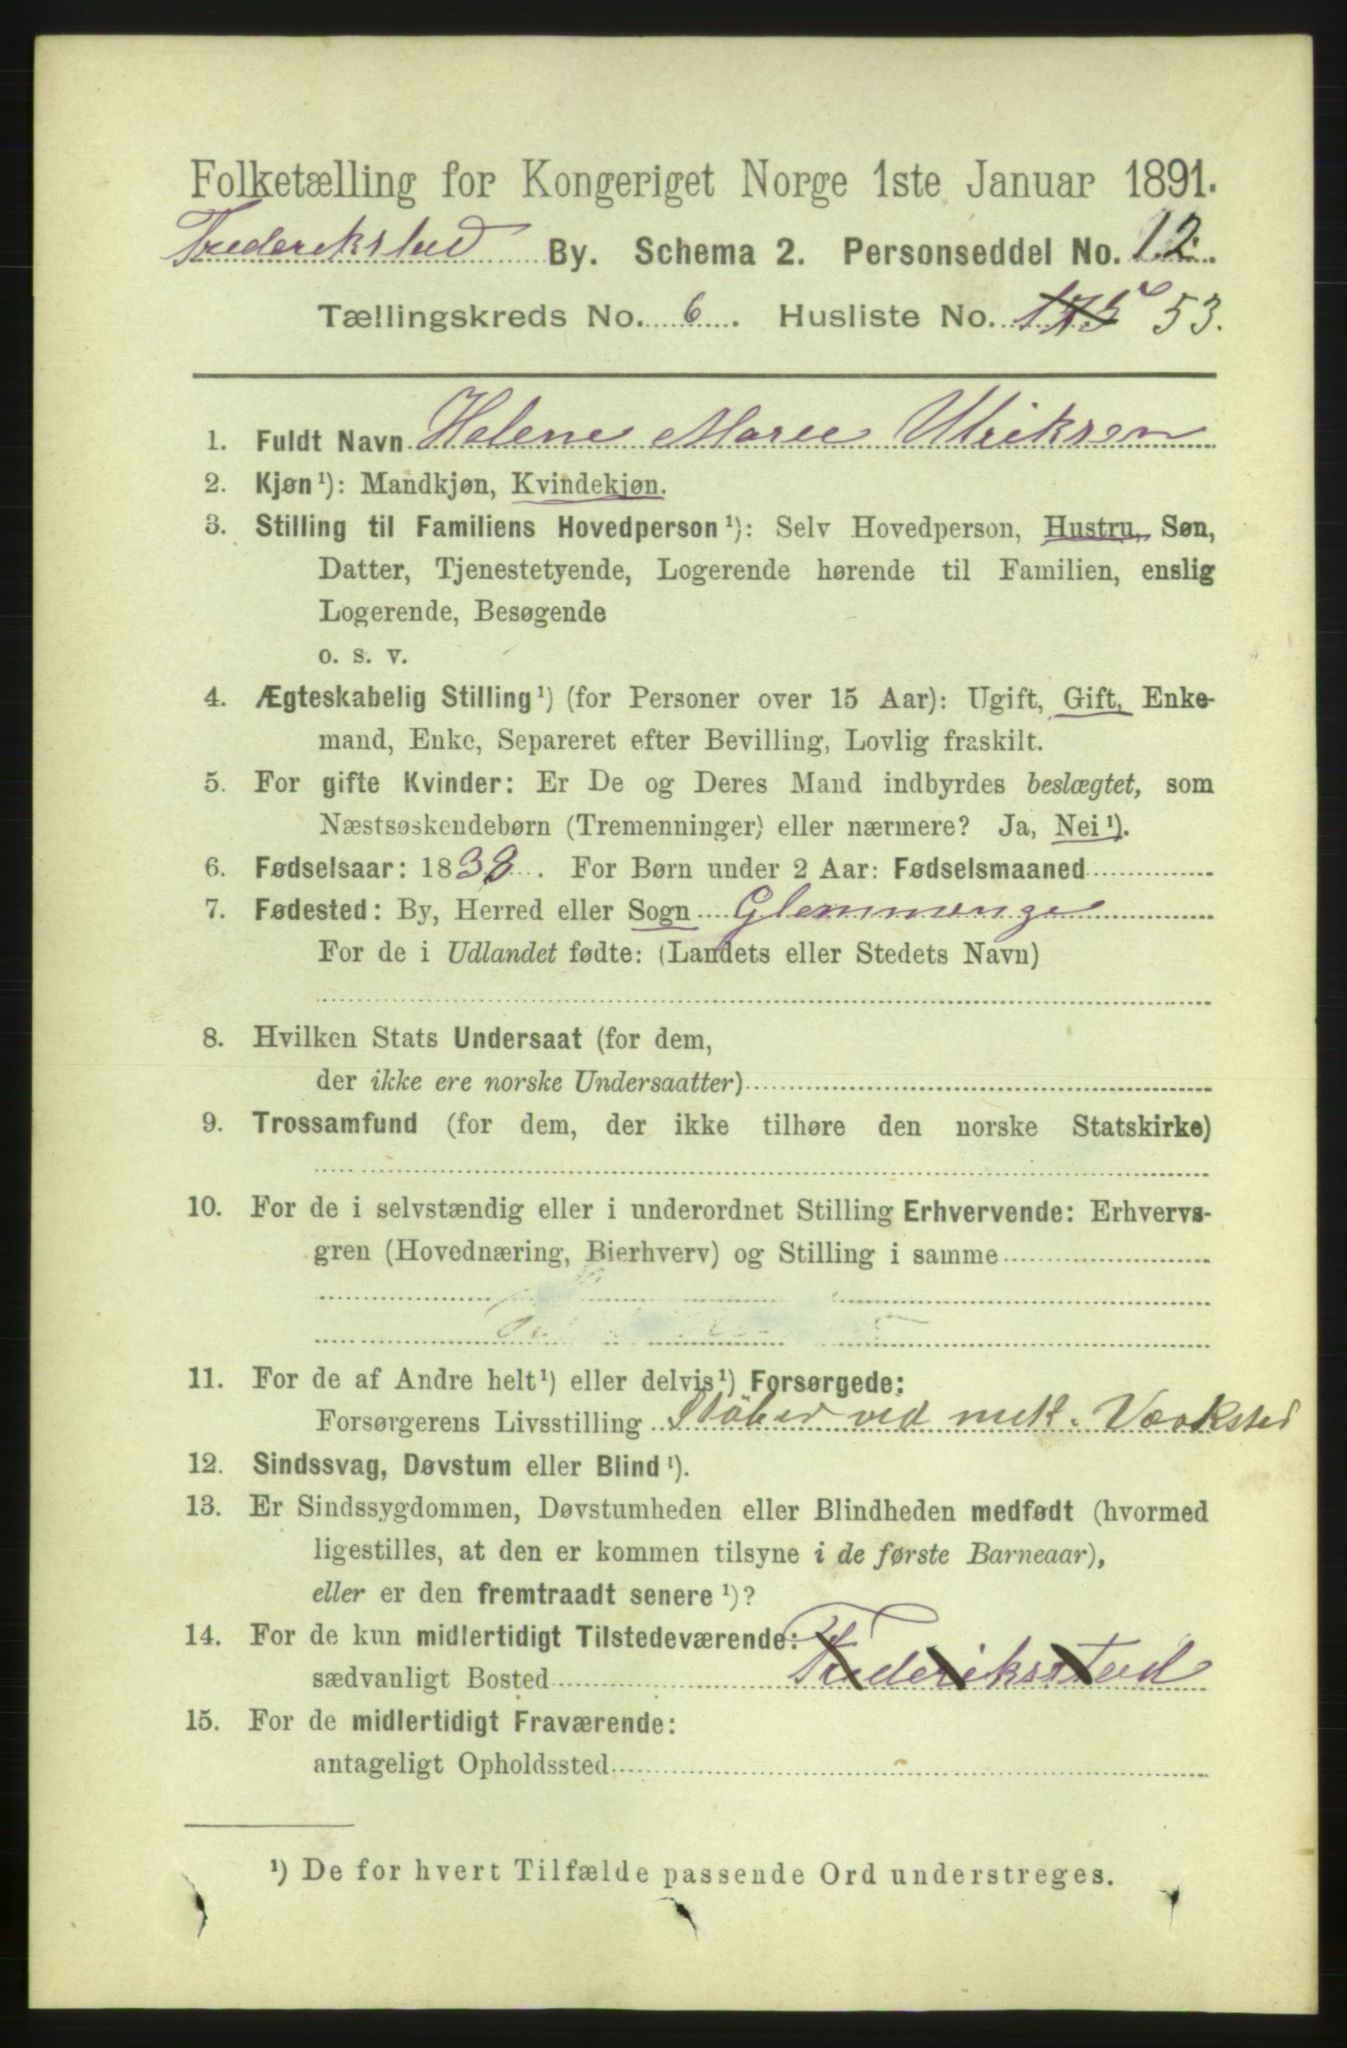 Folketælling for Kongeriget Norge 1ste Januar 1891.
Frederikstad By. Schema 2. Personseddel No. 12
Tællingskreds No. 6. Husliste No. 175 53.
1. Fuldt Navn Helene Marie Ulriksen
2. Kjøn¹): Mandkjøn, Kvindekjøn.
3. Stilling til Familiens Hovedperson¹): Selv Hovedperson, Hustru, Søn,
Datter, Tjenestetyende, Logerende hørende til Familien, enslig
Logerende, Besøgende
o. s. v.
4. Ægteskabelig Stilling¹) (for Personer over 15 Aar): Ugift, Gift, Enke-
mand, Enke, Separeret efter Bevilling, Lovlig fraskilt.
5. For gifte Kvinder: Er De og Deres Mand indbyrdes beslægtet, som
Næstsøskendebørn (Tremenninger) eller nærmere? Ja, Nei¹).
6. Fødselsaar: 1838. For Børn under 2 Aar: Fødselsmaaned
7. Fødested: By, Herred eller Sogn Glemmenge
For de i Udlandet fødte: (Landets eller Stedets Navn)
8. Hvilken Stats Undersaat (for dem,
der ikke ere norske Undersaatter)
9. Trossamfund (for dem, der ikke tilhøre den norske Statskirke)
10. For de i selvstændig eller i underordnet Stilling Erhvervende: Erhvervs-
gren (Hovednæring, Bierhverv) og Stilling i samme
11. For de af Andre helt¹) eller delvis¹) Forsørgede:
Forsørgerens Livsstilling Støber ved mek. Værksted
12. Sindssvag, Døvstum eller Blind¹).
13. Er Sindssygdommen, Døvstumheden eller Blindheden medfødt (hvormed
ligestilles, at den er kommen tilsyne i de første Barneaar),
eller er den fremtraadt senere¹)?
14. For de kun midlertidigt Tilstedeværende:
sædvanligt Bosted Frederiksstad
15. For de midlertidigt Fraværende:
antageligt Opholdssted
¹) De for hvert Tilfælde passende Ord understreges.